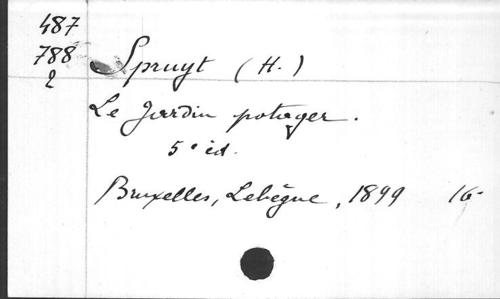 487
788
2
Spruyt (H.)
Le Jardin potager.
5e éd.
Bruxelles, Lebègue, 1899 16-